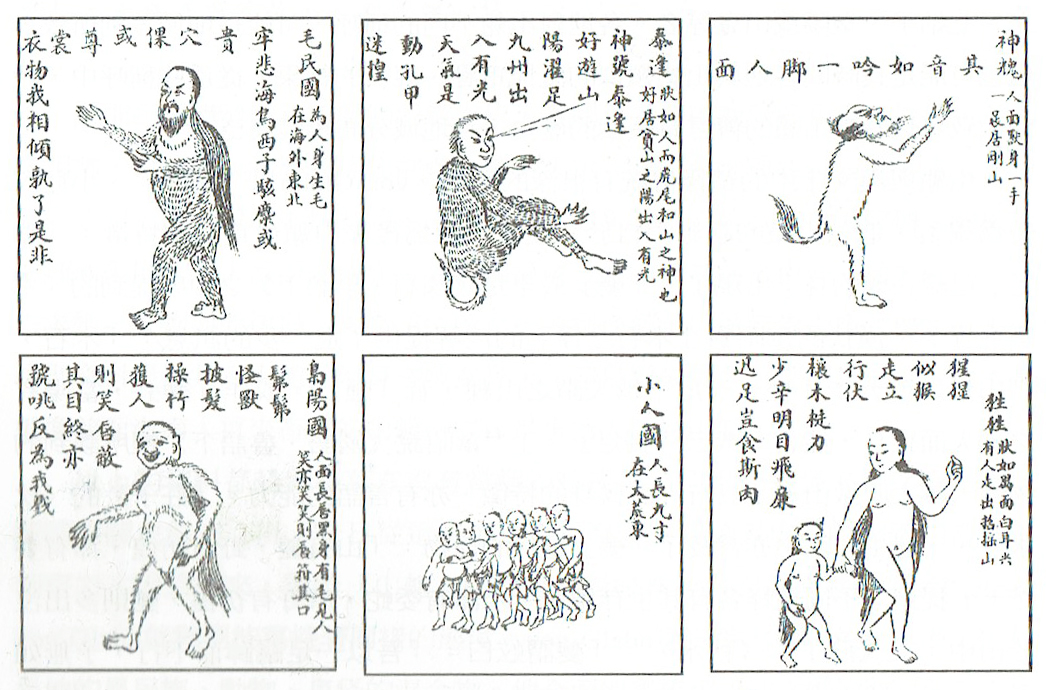 神
人面獸身一手
一足居剛山
其音如吟一脚人面
泰逢
狀如人而虎尾和山之神也
好居萯山之陽出入有光
神號泰逢
好遊山
陽濯足
九州出
入有光
天氣是
動孔甲
迷惶
毛民國
為人身生毛
在海外東北
牢悲海鳥西子駭麋或
貴穴倮或尊裳
衣物我相傾孰了是非
狌狌
狀如禺面白耳
有人走出招搖山
猩猩
似猴
走立
行伏
櫰木挺力
少辛明目飛廉
迅足豈食斯肉
小人國
人長九寸
在大荒東
梟陽國
人面長唇黑身有毛見人
笑亦笑笑則唇蔽其口
髴髴
怪獸
披髮
操竹
獲人
則笑唇蔽
其目終亦
號咷反為我戮